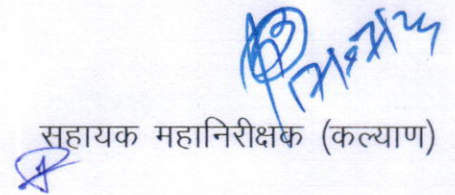 सहायक महानिरीक्षक (कल्याण)